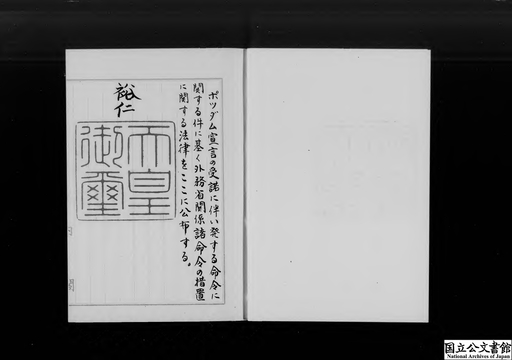 ポツダム宣言の受諾に伴い発する命令に
関する件に基く外務省関係諸命令の措置
に関する法律をここに公布する。
裕仁
天皇
御璽
国立公文書館
National Archives of Japan